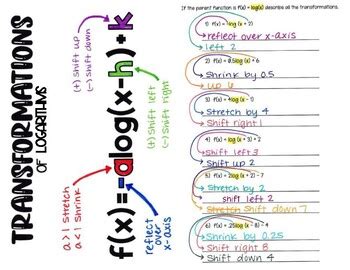 TRANSFORMATIONS
OF LOGARITHMS
(+) Shift up
(-) Shift down
f(x)=-alog(x-h)+k
(+) Shift left
(-) Shift right
a > 1 Stretch
a < 1 Shrink
reflect
over
x-axis
If the parent function is f(x) = log(x) describe all the transformations.
1) f(x) = -log (x + 2)
reflect over x-axis
left 2
2) f(x) = 0.5log (x) + 6
Shrink by 0.5
up 6
3) f(x) = 4log (x - 1)
Stretch by 4
Shift right 1
4) f(x) = log (x + 3) + 2
Shift left 3
Shift up 2
5) f(x) = 2log (x + 2) - 7
Stretch by 2
shift left 2
Stretch Shift down 7
6) f(x) = .25log (x - 8) - 4
Shrink by 0.25
Shift right 8
Shift down 4